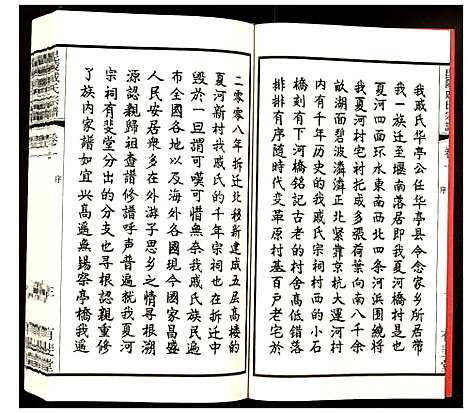 我戚氏华亭公任华亭县令念家乡所居带
我一族人迁至堰南落居即我夏河桥村是
夏河四面环水东南西北四条河浜围绕将
我夏河村宅村形成多张荷叶向南八千余
亩湖面碧波潾潾正北紧靠京杭大运河村
内有千年历史的我戚氏宗祠村西的小石
桥刻有下河桥铭记古老的村宅高低错落
排排有序随时代变革原村基百户老宅于
二零零八年拆迁北移新建成五层高楼的
夏河新村我戚氏的千年宗祠也在拆迁中
毁於一旦可谓可嘆可惜無奈我戚氏族民遍
布全国各地及海外各国現今国家昌盛
为安居寒眾多在外游子思乡之情寻根溯
源认親歸祖查谱修谱呼声普遍就我夏河
宗祠有斐堂分出的分支也寻根認親重修
了族内家谱如宜兴高遍無锡察亭橋我遍
序
序